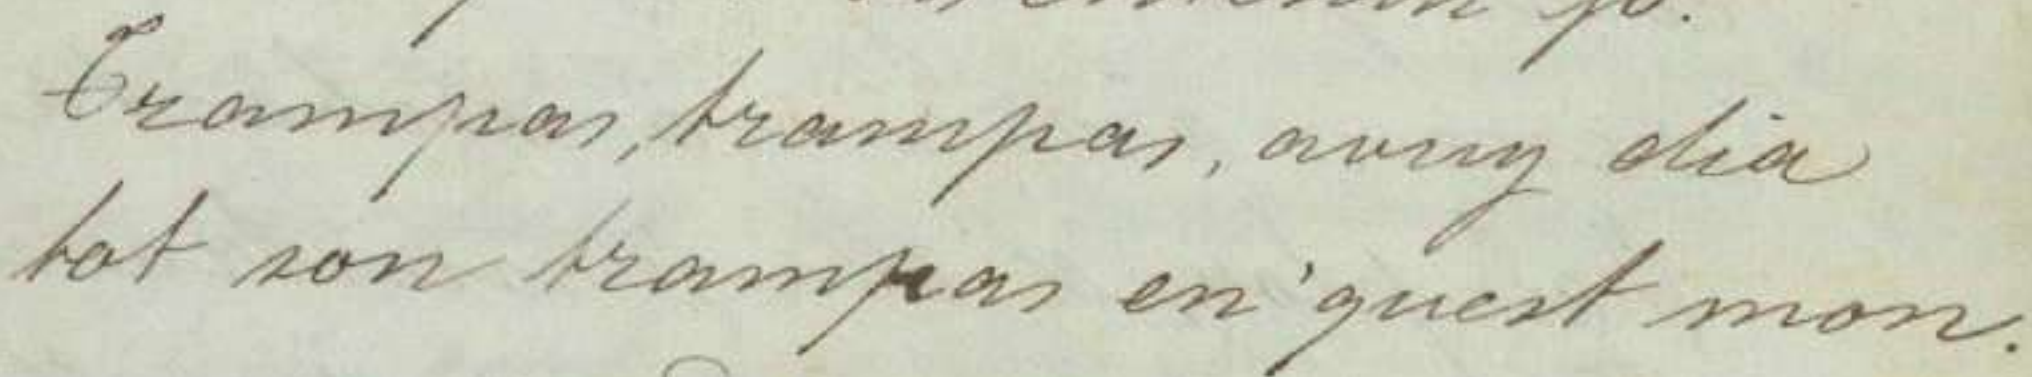 jo.
Trampas, trampas, avuy dia
tot son trampas en 'quest mon.